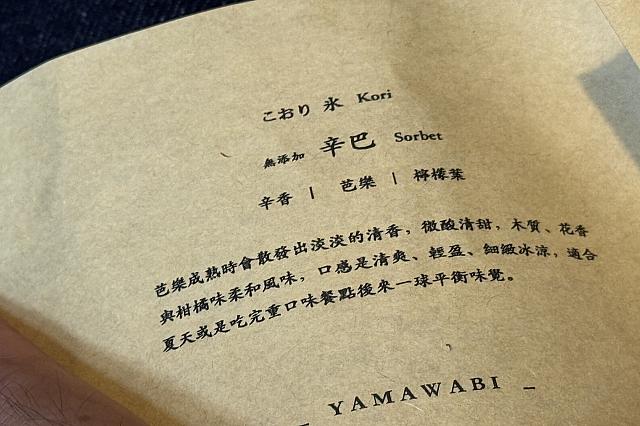 こおり 氷 Kori
無添加 辛巴 Sorbet
辛香 | 芭樂 | 檸檬葉
芭樂成熟時會散發出淡淡的清香，微酸清甜，木質、花香
與柑橘味柔和風味，口感是清爽、輕盈、細緻冰涼，適合
夏天或是吃完重口味餐點後來一球平衡味覺。
– YAMAWABI –